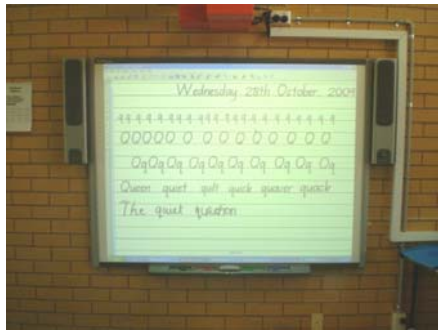 Wednesday 28th October 2009
q q q q q q q q q q q q q q q q q q
Q Q Q Q Q Q Q Q Q Q Q Q Q Q
Qq Qq Qq Qq Qq Qq Qq Qq Qq Qq
Queen quiet quilt quick quaver quack
The quiet question